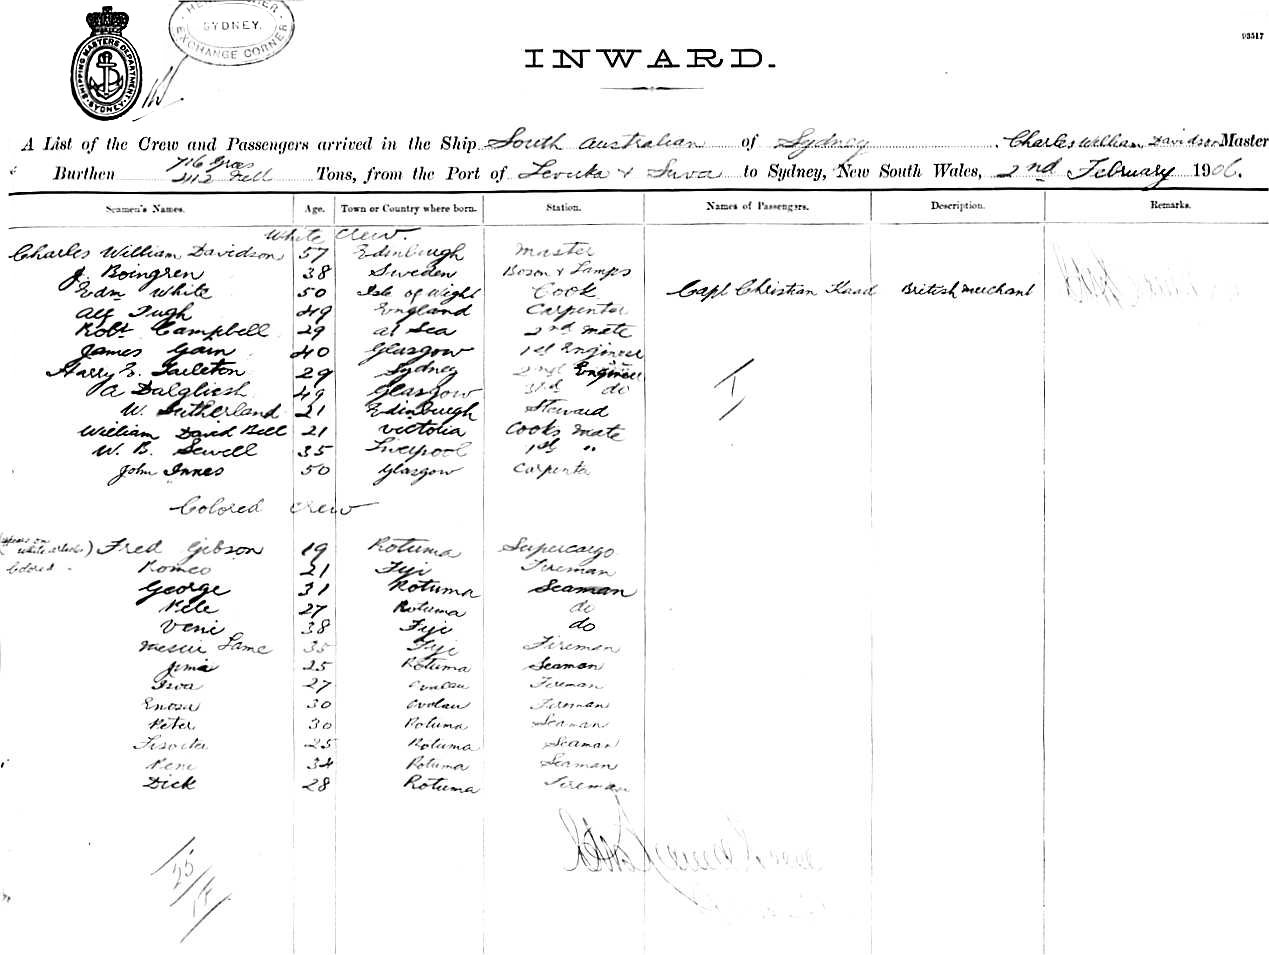 SHIPPING MASTERS DEPARTMENT SYDNEY
SYDNEY.
EXCHANGE CORNER
93517
INWARD.
A List of the Crew and Passengers arrived in the Ship South Australian of Sydney Charles William Davidson Master
Burthen 716 Gros 412 Nett Tons, from the Port of Levuka & Suva to Sydney, New South Wales, 2nd February 1906.
Seamen's Names. Age. Town or Country where born. Station. Names of Passengers. Description. Remarks.
White Crew.
Charles William Davidson 57 Edinburgh Master
J. Boingren 38 Sweden Boson & Lamps
Edn White 50 Isle of Wight Cook Capt Christian Kaad British Merchant
Alf Pugh 49 England Carpenter
Robt Campbell 29 at Sea 2nd Mate
James Gain 40 Glasgow 1st Engineer
Harry E. Tarleton 29 Sydney 2nd Engineer
A Dalgliesh 49 Glasgow 3rd do
W. Sutherland 21 Edinburgh Steward
William David Bell 21 Victoria Cooks Mate
W. B. Sewell 35 Liverpool 1st "
John Innes 50 Glasgow Carpenter
Colored Crew
white articles) Fred Gibson 19 Rotuma Supercargo
Colored Romeo 21 Fiji Fireman
George 31 Rotuma Seaman
Pele 27 Rotuma do
Veni 38 Fiji do
Lame 35 Fiji Fireman
Jima 25 Rotuma Seaman
27 Ovalau Fireman
Enosa 30 Ovolau Fireman
Peter 30 Rotuma Seaman
25 Rotuma Seaman
Peni 34 Rotuma Seaman
Dick 28 Rotuma Fireman